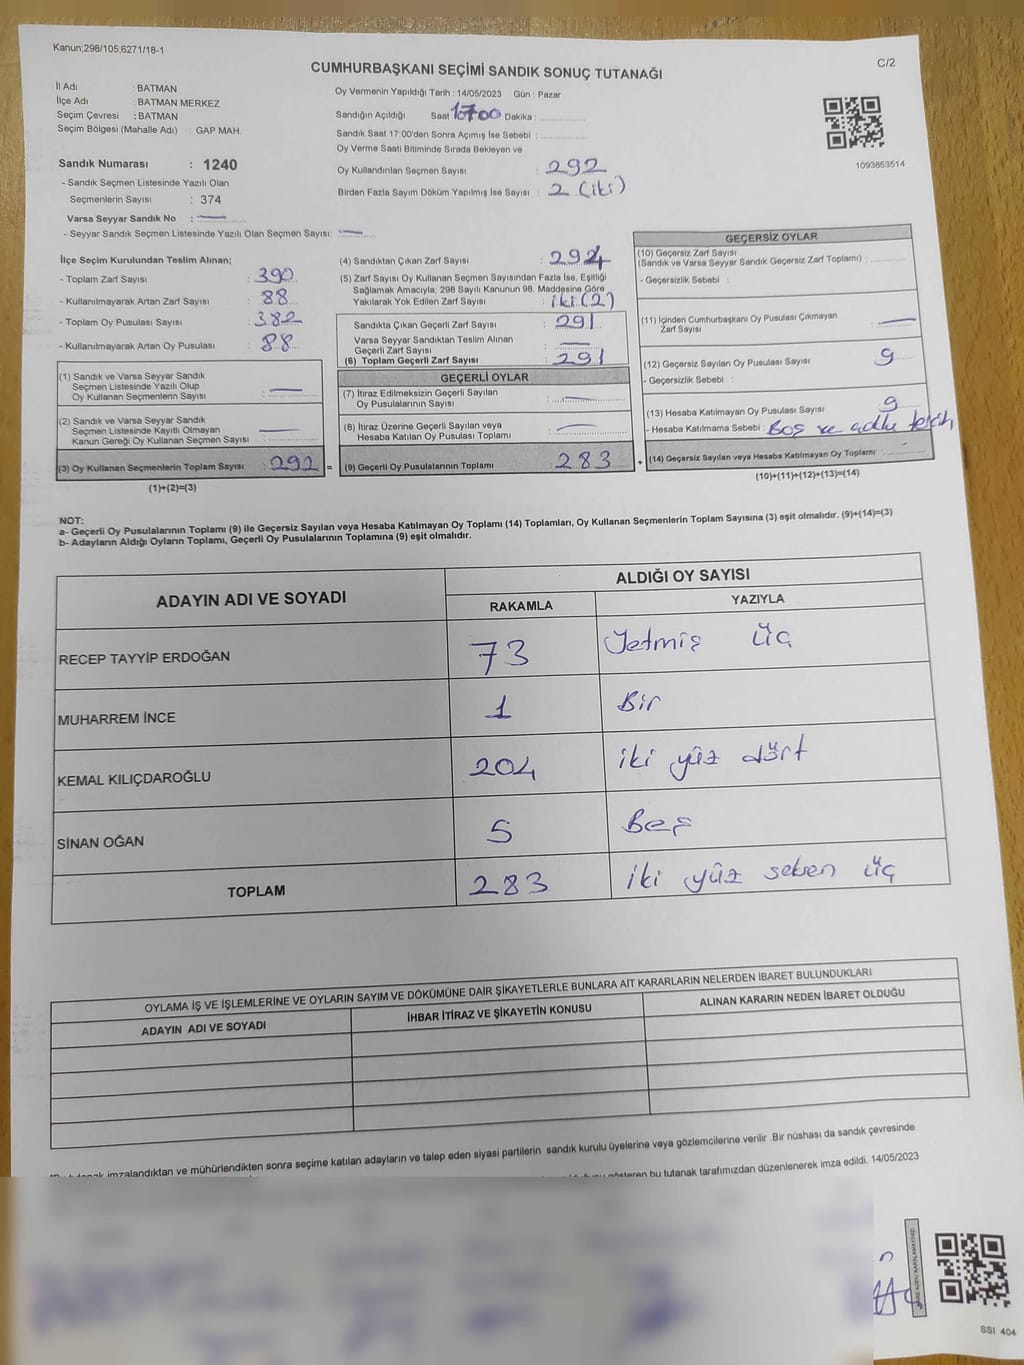 Kanun;298/105;6271/18-1
C/2
CUMHURBAŞKANI SEÇİMİ SANDIK SONUÇ TUTANAĞI
İl Adı : BATMAN
İlçe Adı : BATMAN MERKEZ
Seçim Çevresi : BATMAN
Seçim Bölgesi (Mahalle Adı) : GAP MAH.
Sandık Numarası : 1240
- Sandık Seçmen Listesinde Yazılı Olan
Seçmenlerin Sayısı : 374
Varsa Seyyar Sandık No :
- Seyyar Sandık Seçmen Listesinde Yazılı Olan Seçmen Sayısı:
Oy Vermenin Yapıldığı Tarih : 14/05/2023 Gün : Pazar
Sandığın Açıldığı Saat 17:00 Dakika :
Sandık Saat 17:00'den Sonra Açımış İse Sebebi :
Oy Verme Saati Bitiminde Sırada Bekleyen ve
Oy Kullandırılan Seçmen Sayısı : 292
Birden Fazla Sayım Döküm Yapılmış İse Sayısı : 2 (iki)
1093853514
İlçe Seçim Kurulundan Teslim Alınan;
- Toplam Zarf Sayısı : 390
- Kullanılmayarak Artan Zarf Sayısı : 88
- Toplam Oy Pusulası Sayısı : 382
- Kullanılmayarak Artan Oy Pusulası : 88
(1) Sandık ve Varsa Seyyar Sandık
Seçmen Listesinde Yazılı Olup
Oy Kullanan Seçmenlerin Sayısı :
(2) Sandık ve Varsa Seyyar Sandık
Seçmen Listesinde Kayıtlı Olmayan
Kanun Gereği Oy Kullanan Seçmen Sayısı :
(3) Oy Kullanan Seçmenlerin Toplam Sayısı : 292 =
(1)+(2)=(3)
(4) Sandıktan Çıkan Zarf Sayısı : 294
(5) Zarf Sayısı Oy Kullanan Seçmen Sayısından Fazla İse, Eşitliği
Sağlamak Amacıyla; 298 Sayılı Kanunun 98. Maddesine Göre
Yakılarak Yok Edilen Zarf Sayısı : iki (2)
Sandıkta Çıkan Geçerli Zarf Sayısı : 291
Varsa Seyyar Sandıktan Teslim Alınan
Geçerli Zarf Sayısı :
(6) Toplam Geçerli Zarf Sayısı : 291
GEÇERLİ OYLAR
(7) İtiraz Edilmeksizin Geçerli Sayılan
Oy Pusulalarının Sayısı :
(8) İtiraz Üzerine Geçerli Sayılan veya
Hesaba Katılan Oy Pusulası Toplamı :
(9) Geçerli Oy Pusulalarının Toplamı : 283 +
GEÇERSİZ OYLAR
(10) Geçersiz Zarf Sayısı
(Sandık ve Varsa Seyyar Sandık Geçersiz Zarf Toplamı) :
- Geçersizlik Sebebi :
(11) İçinden Cumhurbaşkanı Oy Pusulası Çıkmayan
Zarf Sayısı :
(12) Geçersiz Sayılan Oy Pusulası Sayısı : 9
- Geçersizlik Sebebi :
(13) Hesaba Katılmayan Oy Pusulası Sayısı : 9
- Hesaba Katılmama Sebebi : Boş ve
(14) Geçersiz Sayılan veya Hesaba Katılmayan Oy Toplamı :
(10)+(11)+(12)+(13)=(14)
NOT:
a- Geçerli Oy Pusulalarının Toplamı (9) ile Geçersiz Sayılan veya Hesaba Katılmayan Oy Toplamı (14) Toplamları, Oy Kullanan Seçmenlerin Toplam Sayısına (3) eşit olmalıdır. (9)+(14)=(3)
b- Adayların Aldığı Oyların Toplamı, Geçerli Oy Pusulalarının Toplamına (9) eşit olmalıdır.
ADAYIN ADI VE SOYADI
ALDIĞI OY SAYISI
RAKAMLA YAZIYLA
RECEP TAYYİP ERDOĞAN 73 Yetmiş üç
MUHARREM İNCE 1 Bir
KEMAL KILIÇDAROĞLU 204 iki yüz dört
SİNAN OĞAN 5 Beş
TOPLAM 283 iki yüz seksen üç
OYLAMA İŞ VE İŞLEMLERİNE VE OYLARIN SAYIM VE DÖKÜMÜNE DAİR ŞİKAYETLERLE BUNLARA AİT KARARLARIN NELERDEN İBARET BULUNDUKLARI
ADAYIN ADI VE SOYADI İHBAR İTİRAZ VE ŞİKAYETİN KONUSU ALINAN KARARIN NEDEN İBARET OLDUĞU
imzalandıktan ve mühürlendikten sonra seçime katılan adayların ve talep eden siyasi partilerin sandık kurulu üyelerine veya gözlemcilerine verilir .Bir nüshası da sandık çevresinde
gösteren bu tutanak tarafımızdan düzenlenerek imza edildi. 14/05/2023
SSI 404